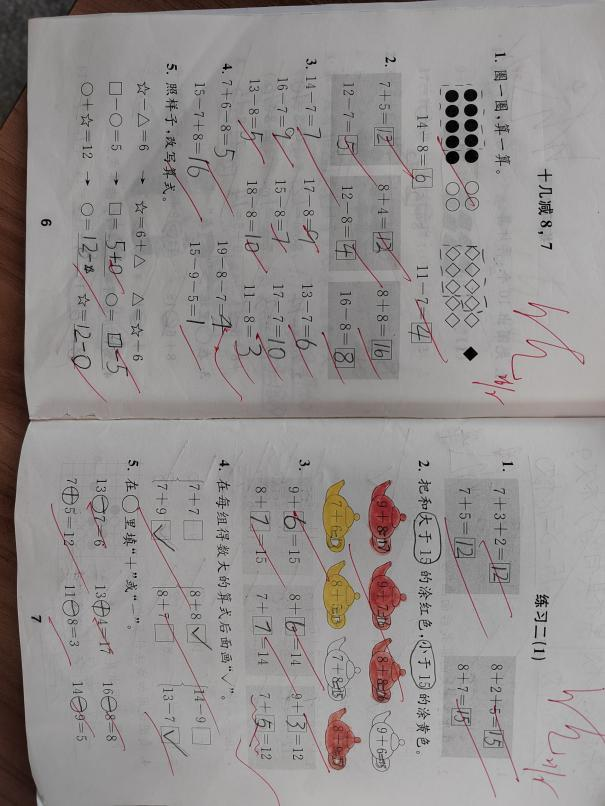 十几减 8,7
1. 圈一圈,算一算。
14-8=6 11-7=4
2. 7+5=12 8+4=12 8+8=16
12-7=5 12-8=4 16-8=8
3. 14-7=7 17-8=9 13-7=6
16-7=9 15-8=7 17-7=10
13-8=5 18-8=10 11-8=3
4. 7+6-8=5 19-8-7=4
15-7+8=16 15-9-5=1
5. 照样子,改写算式。
☆-△=6 → ☆=6+△ △=☆-6
□-○=5 → □=5+○ ○=□-5
○+☆=12 → ○=12-☆ ☆=12-○
6
练习二(1)
1. 7+3+2=12 8+2+5=15
7+5=12 8+7=15
2. 把和大于 15 的涂红色,小于 15 的涂黄色。
9+8=17 9+7=16 8+8=16 9+6=15
7+6=13 8+5=13 7+8=15
3. 9+6=15 8+6=14 9+3=12
8+7=15 7+7=14 7+5=12
4. 在每组得数大的算式后面画“√”。
7+7□ 8+8√ 14-9□
7+9√ 8+7□ 13-7√
5. 在○里填“+”或“-”。
13-7=6 13+4=17 16-8=8
7+5=12 11-8=3 14-9=5
7